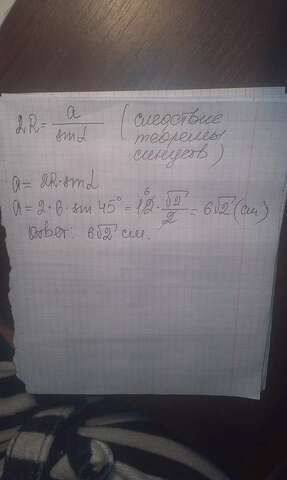 2R = a / sin α (следствие
теоремы
синусов)
a = 2R · sin α
a = 2 · 6 · sin 45° = 12 · √2 / 2 = 6√2 (см)
6
Ответ: 6√2 см.